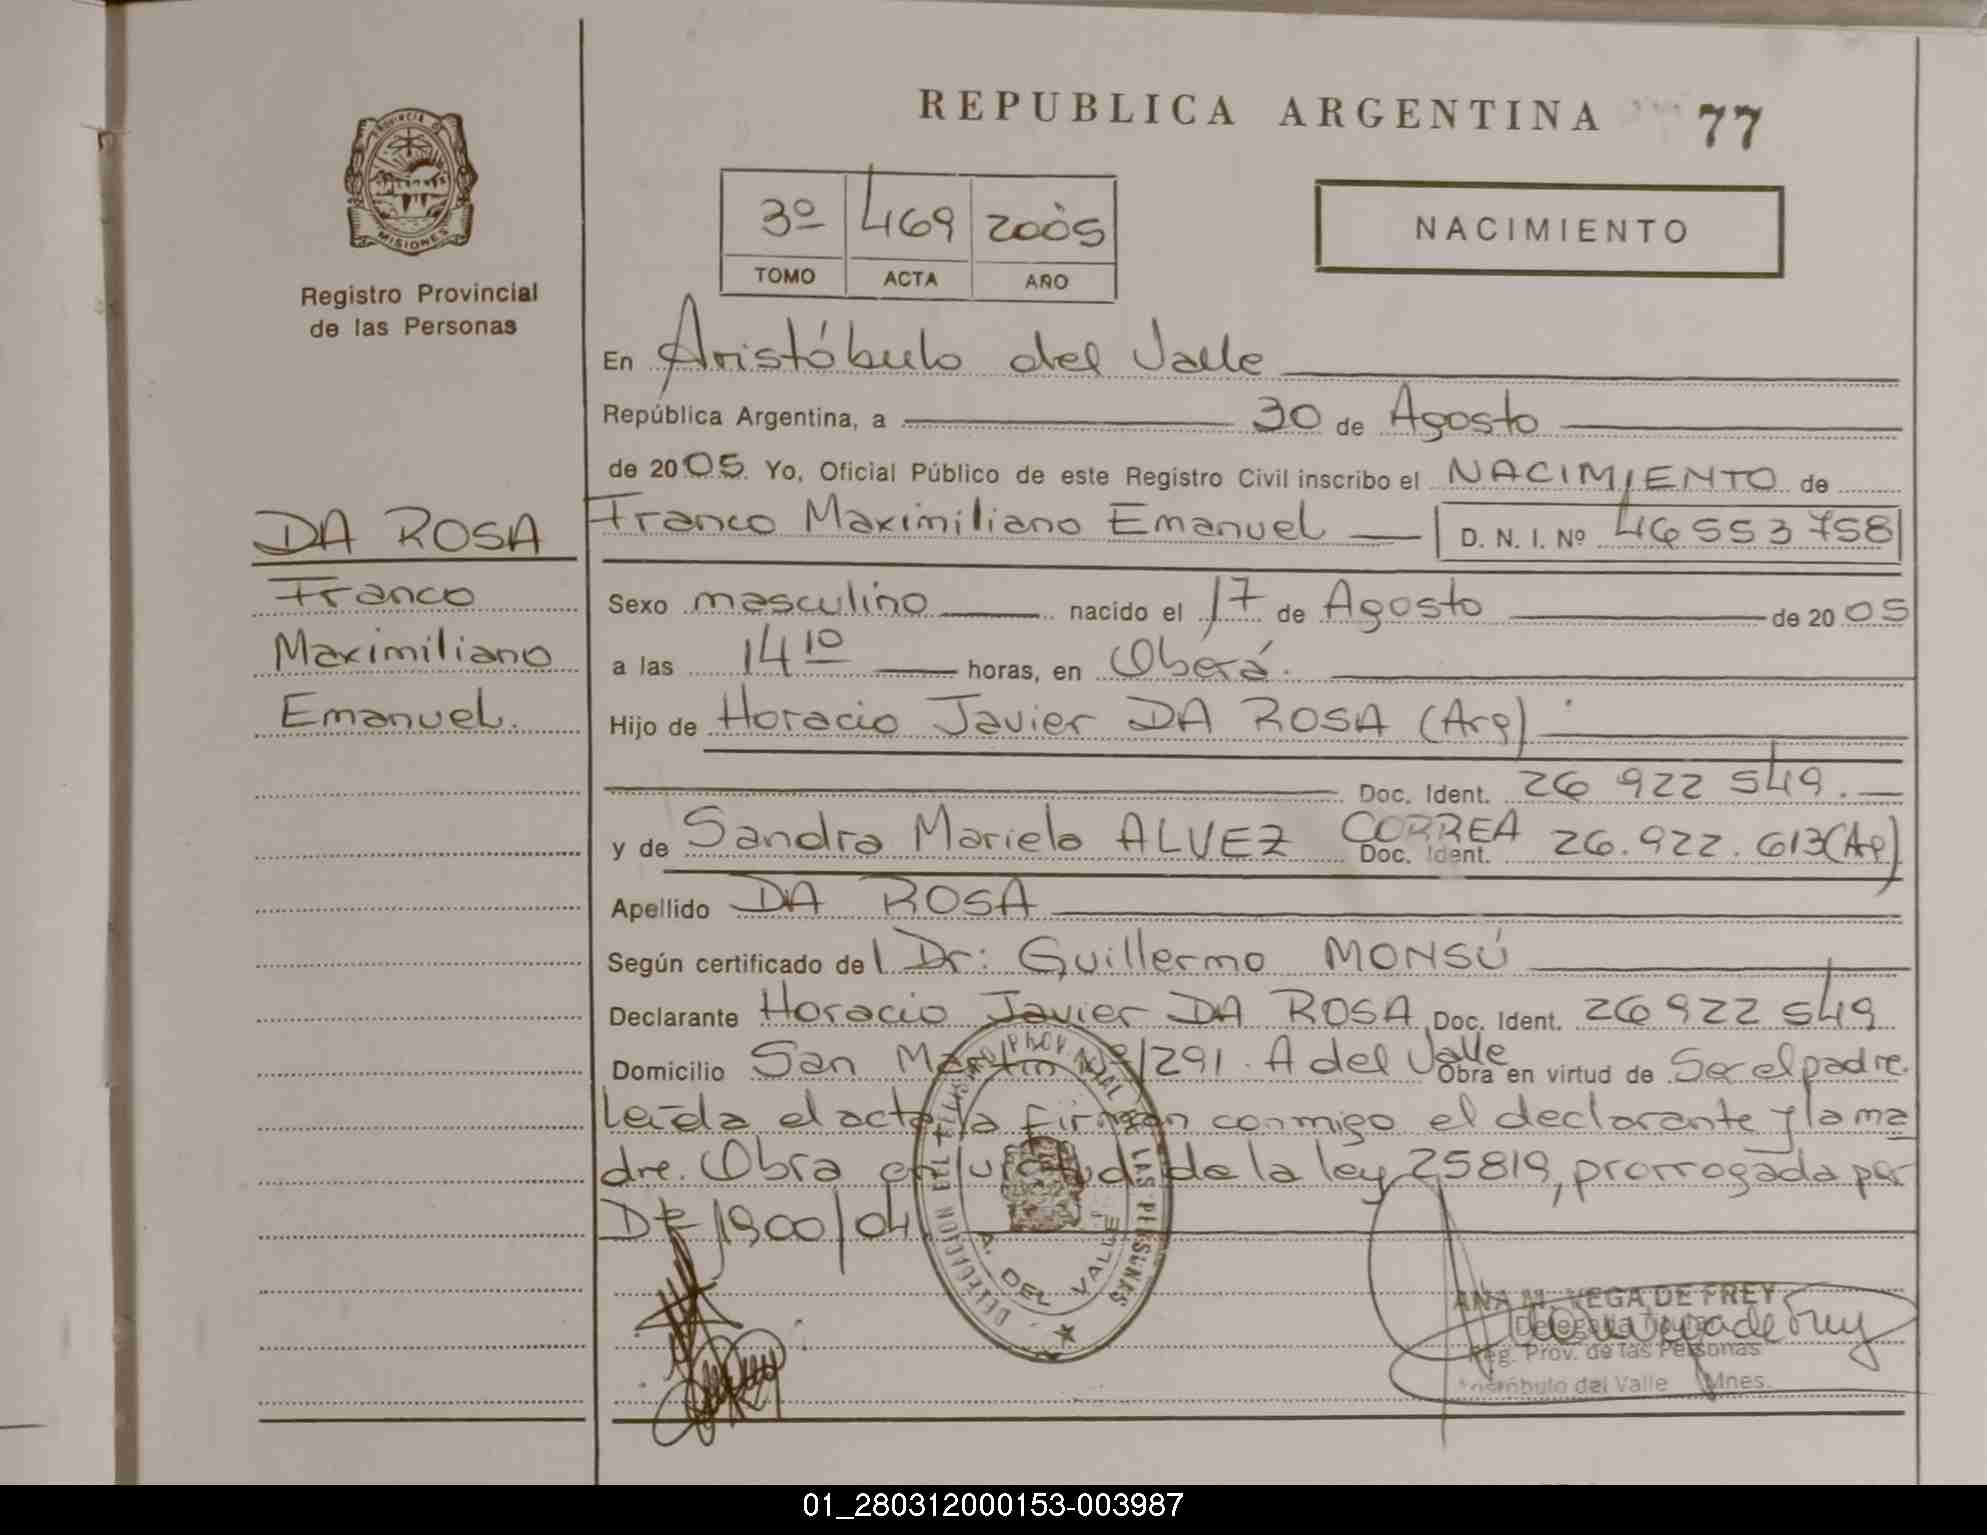 REPUBLICA ARGENTINA 77
PROVINCIA D
MISIONES
Registro Provincial
de las Personas
3º 469 2005
TOMO ACTA AÑO
NACIMIENTO
En Aristóbulo del Valle
República Argentina, a 30 de Agosto
de 2005. Yo, Oficial Público de este Registro Civil inscribo el NACIMIENTO de
DA ROSA
Franco
Maximiliano
Emanuel.
Franco Maximiliano Emanuel D. N. I. Nº 46 553 758
Sexo masculino nacido el 17 de Agosto de 2005
a las 14 10 horas, en Oberá.
Hijo de Horacio Javier DA ROSA (Arg)
Doc. Ident. 26 922 549.
y de Sandra Mariela ALVEZ CORREA Doc. Ident. 26.922.613 (Arg)
Apellido DA ROSA
Según certificado del Dr: Guillermo MONSÚ
Declarante Horacio Javier DA ROSA Doc. Ident. 26 922 549
Domicilio San Martin Nº 1291. A del Valle Obra en virtud de Ser el padre.
Leída el acta la firman conmigo el declarante y la ma
dre. Obra en virtud de la ley 25819, prorrogada por
1900/04
DELEGACION DEL REGISTRO PROVINCIAL DE LAS PERSONAS
A. DEL VALLE
ANA M. VEGA DE FREY
Delegada Titular
Reg. Prov. de las Personas
Aristóbulo del Valle Mnes.
01_280312000153-003987